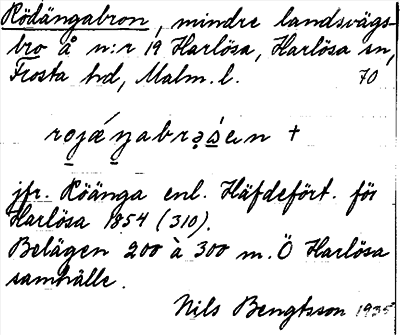 Rödängabron, mindre landsvägs-
bro å n:r 19 Harlösa, Harlösa sn,
Frosta hd, Malm. l. 70
jfr. Röänga enl. Häfdefört. för
Harlösa 1854 (310).
Belägen 200 à 300 m. Ö Harlösa
samhälle.
Nils Bengtsson 1935